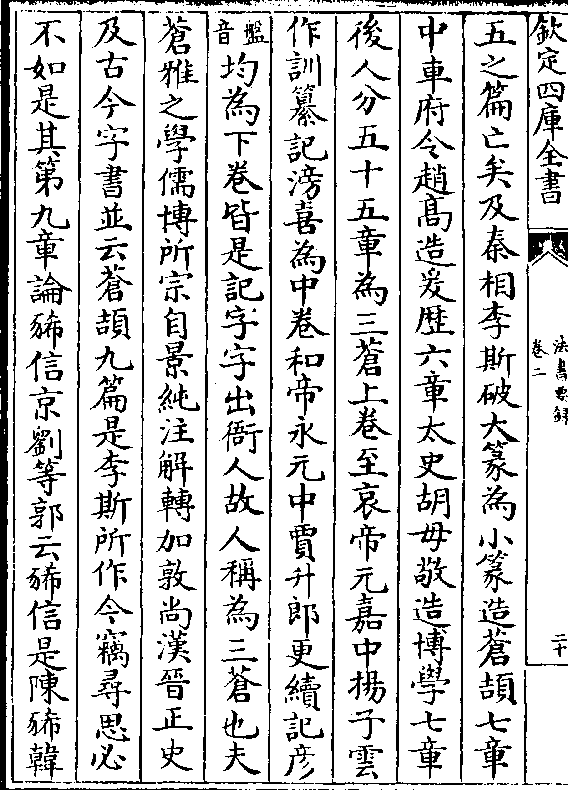 欽定四庫全書
法書要録
卷二
二十
五之篇亡矣及秦相李斯破大篆為小篆造蒼頡七章
中車府令趙髙造爰歴六章太史胡毋敬造博學七章
後人分五十五章為三蒼上卷至哀帝元嘉中揚子雲
作訓纂記滂喜為中卷和帝永元中賈升郎更續記彦
盤音均為下卷皆是記字字出衙人故人稱為三蒼也夫
蒼雅之學儒博所宗自景純注解轉加敦尚漢晉正史
及古今字書並云蒼頡九篇是李斯所作今竊尋思必
不如是其第九章論豨信京劉等郭云豨信是陳豨韓